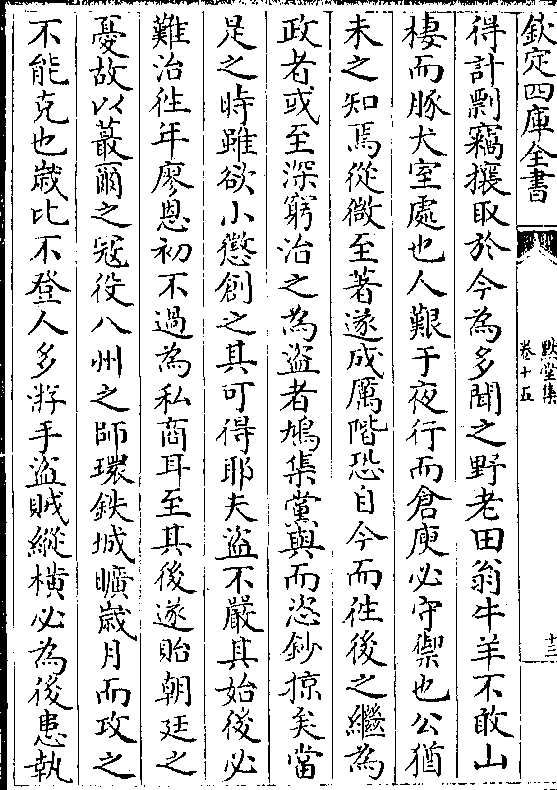 欽定四庫全書
默堂集
卷十五
十三
得計剽竊攘取於今為多聞之野老田翁牛羊不敢山
棲而豚犬室處也人艱于夜行而倉庾必守禦也公猶
未之知焉從微至著遂成厲階恐自今而徃後之繼為
政者或至深窮治之為盜者鳩集黨與而恣鈔掠矣當
是之時雖欲小懲創之其可得耶夫盜不嚴其始後必
難治徃年廖恩初不過為私商耳至其後遂貽朝廷之
憂故以蕞爾之冦役八州之師環鉄城曠歳月而攻之
不能克也歳比不登人多游手盜賊縱橫必為後患執